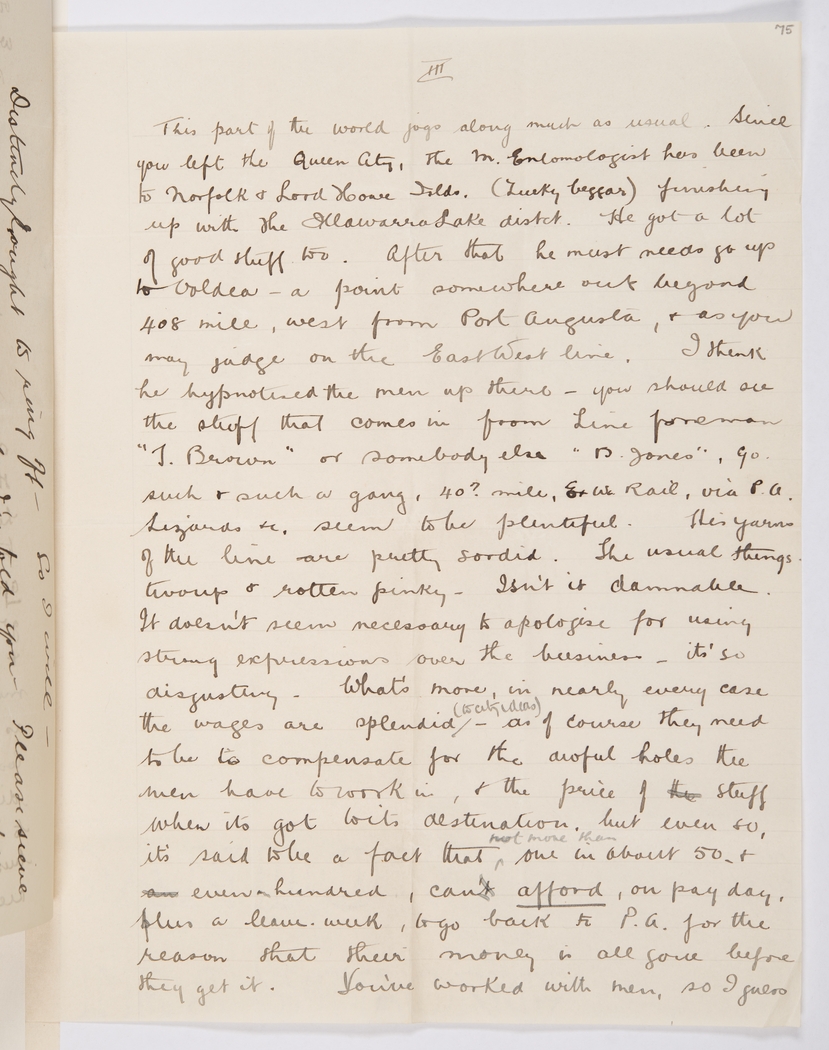 75
III
This part of the world jogs along much as usual. Since
you left the Queen City, the M. Entomologist has been
to Norfolk & Lord Howe Islds. (Lucky beggar) finishing
up with the Illawarra Lake distct. He got a lot
of good stuff too. After that he must needs go up
to Ooldea – a point somewhere out beyond
408 mile, west from Port Augusta, & as you
may judge on the East West line. I think
he hypnotised the men up there – you should see
the stuff that comes in from Line foreman
"T. Brown" or somebody else "B. Jones", Go.
such & such a gang, 40? mile, E & W. Rail, via P.A.
Lizards &c. seem to be plentiful. His yarns
of the line are pretty sordid. The usual things
twoup & rotten pinky – Isn't it damnable.
It doesn't seem necessary to apologise for using
strong expressions over the business – it's so
disgusting – What's more, in nearly every case
the wages are splendid (to city ideas) – as of course they need
to be to compensate for the awful holes the
men have to work in, & the price of the stuff
when its got to its destination, but even so,
it's said to be a fact that not more than one in about 50 – &
an even – hundred, can't afford, on pay day,
plus a leave-week, to go back to P.A. for the
reason that their money is all gone before
they get it. You've worked with men, so I guess
Distinctly ought to ring
So I will –
told you
Please